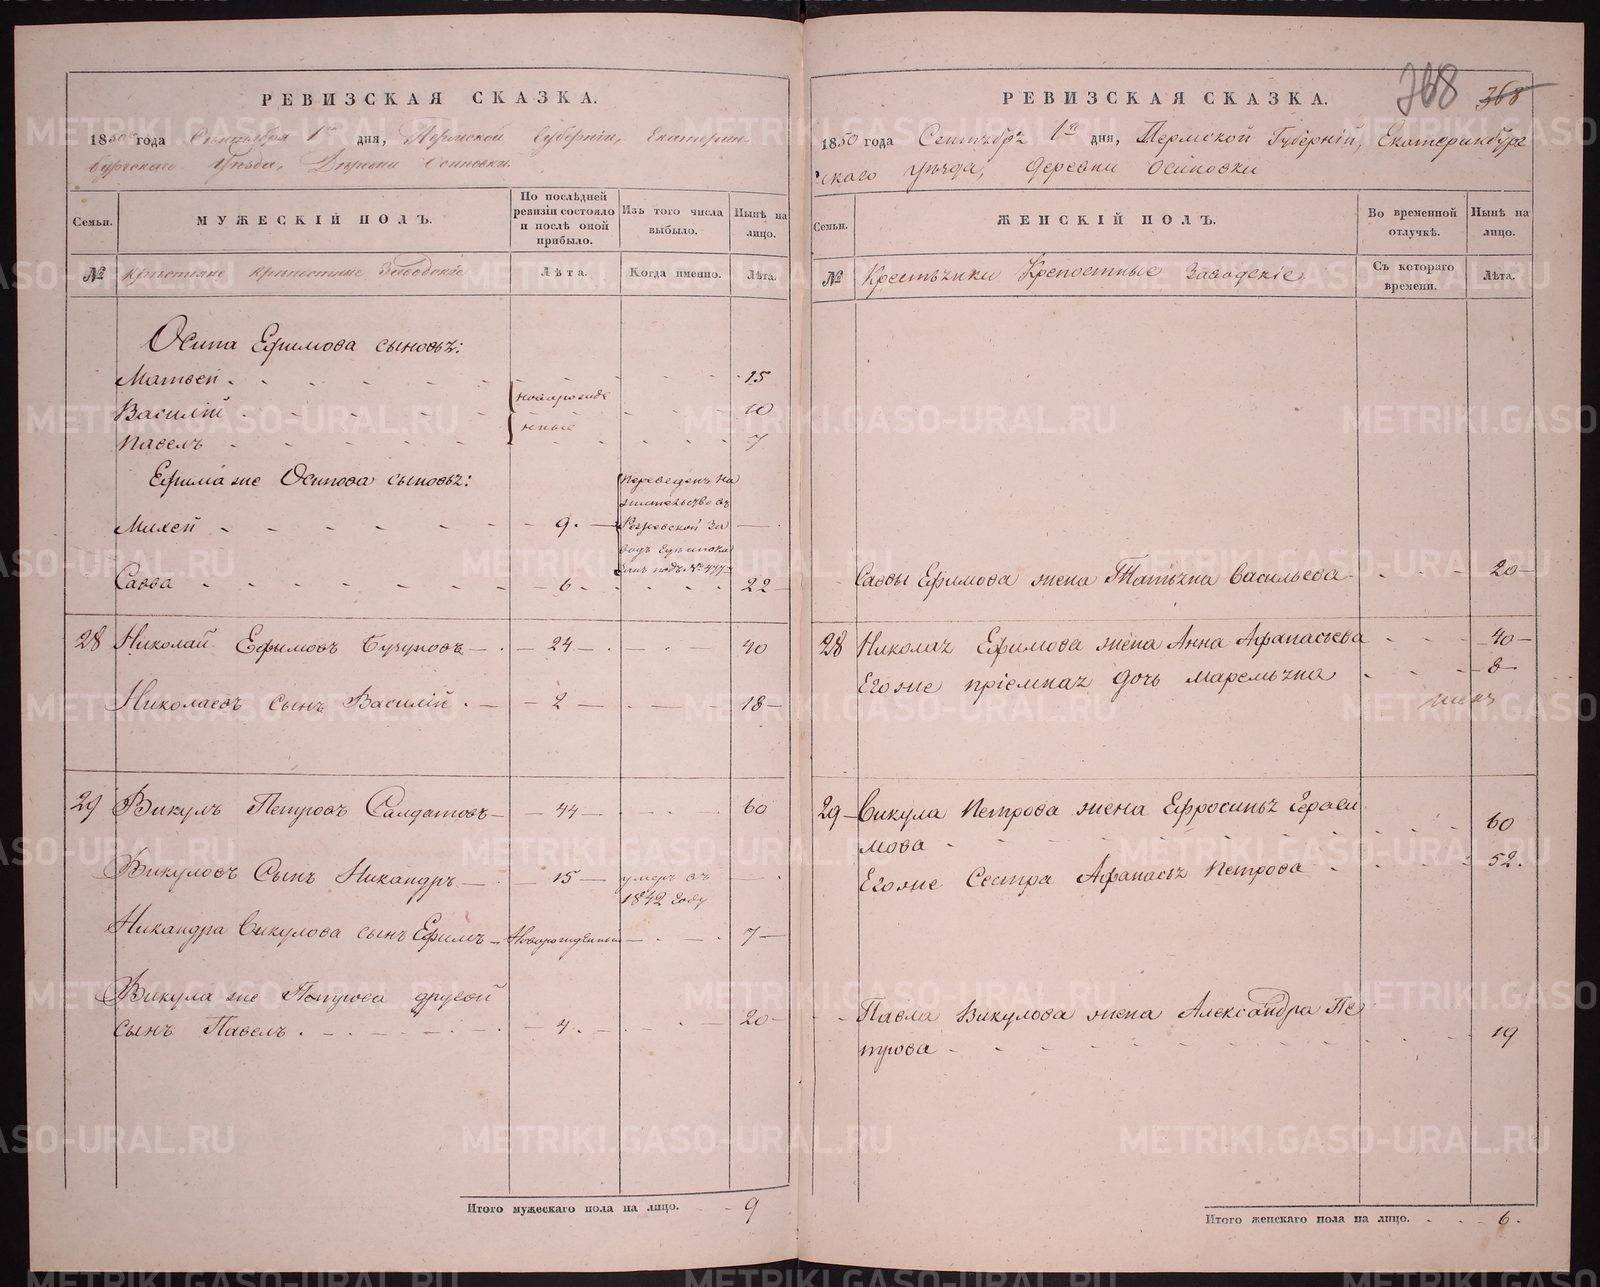 РЕВИЗСКАЯ СКАЗКА.
1850 года Сентября 1го дня, Пермской Губерніи, Екатерин-
бургскаго Уѣзда, Деревни Осиновки.
Семьи.
МУЖЕСКІЙ ПОЛЪ.
По послѣдней ревизіи состояло и послѣ оной прибыло.
Изъ того числа выбыло.
Нынѣ на лицо.
№ Крестьяне крѣпостные Заводскіе
Лѣта.
Когда именно.
Лѣта.
Осипа Ефимова сыновья:
Матвей - 15
Василій - новорожде 10
Павелъ - нные 7
Ефима же Осипова сыновья:
Михей - 9. - Переведенъ на
жительство въ
Режевской За
водъ
подъ № 477
Савва - 6 - 22
28 Николай Ефимовъ - 24 - 40
Николаевъ сынъ Василій - 2 - 18
29 Викулъ Петровъ Салдатовъ - 44 - 60
Викуловъ Сынъ Никандръ - 15 - умеръ въ
1842 году
Никандра Викулова сынъ Ефимъ - Новорожденный - 7
Викула же Петрова другой
сынъ Павелъ - 4 - 20
Итого мужескаго пола на лицо. 9
768 368
РЕВИЗСКАЯ СКАЗКА.
1850 года Сентября 1го дня, Пермской Губерніи, Екатеринбург
скаго уѣзда, деревни Осиновки
Семьи.
ЖЕНСКІЙ ПОЛЪ.
Во временной отлучкѣ.
Нынѣ на лицо.
№ Крестьянки Крепостные Заводскіе
Съ котораго времени.
Лѣта.
Саввы Ефимова жена Татьяна Васильева - 20
28 Николая Ефимова жена Анна Афанасьева - 40
Его же пріемная дочь Маремьяна - 8
29 Викула Петрова жена Ефросинья Гераси
мова - 60
Его же Сестра Афанасья Петрова - 52.
Павла Викулова жена Александра Пе
трова - 19
Итого женскаго пола на лицо. 6.
METRIKI.GASO-URAL.RU